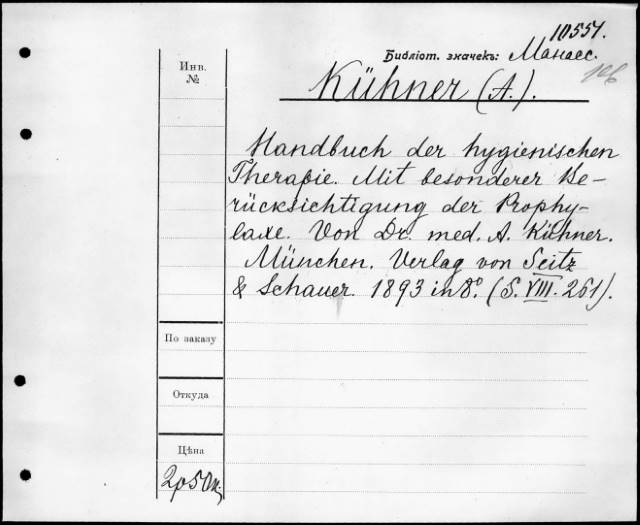 10551.
Библіот. значекъ: Манасс.
Инв.
№
Kühner (A.).
Handbuch der hygienischen
Therapie. Mit besonderer Be-
rücksichtigung der Prophy-
laxe. Von Dr. med. A. Kühner.
München. Verlag von Seitz
& Schauer. 1893 in 8°. (S. VIII. 261).
По заказу
Откуда
Цѣна
2р50к.